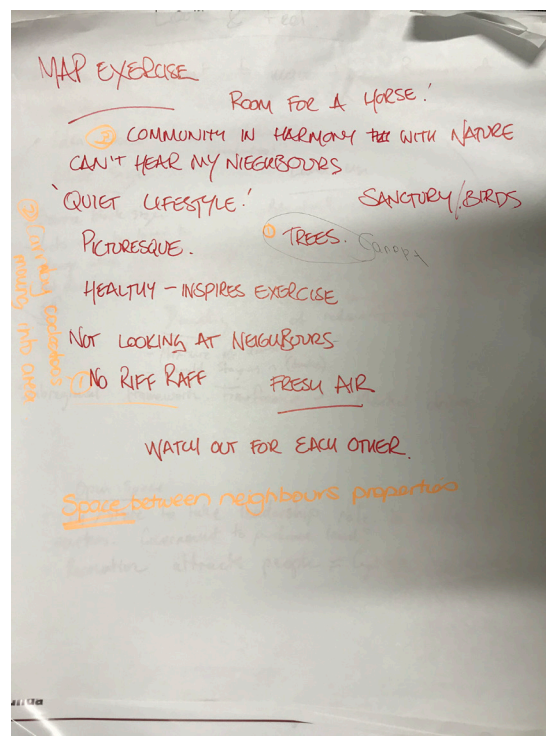 MAP EXERCISE
ROOM FOR A HORSE!
② COMMUNITY IN HARMONY WITH NATURE
CAN'T HEAR MY NIEGHBOURS
'QUIET LIFESTYLE!'
SANCTURY/BIRDS
PICTURESQUE.
① TREES. Canopy
HEALTHY - INSPIRES EXERCISE
NOT LOOKING AT NEIGHBOURS
① NO RIFF RAFF
FRESH AIR
WATCH OUT FOR EACH OTHER.
Space between neighbours properties
cockatoos
moving into area